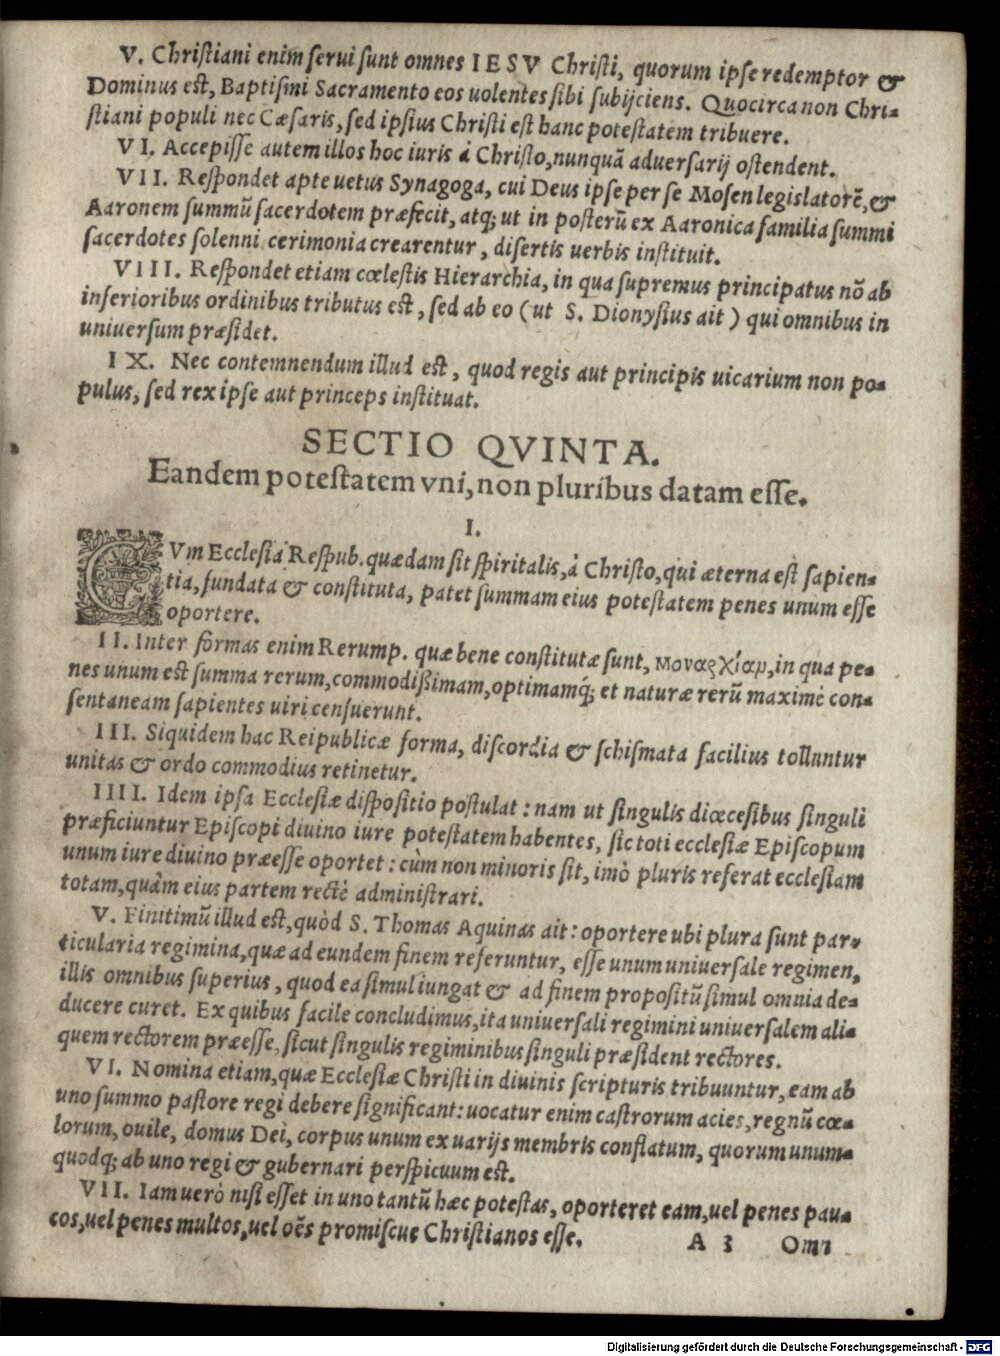 V. Chriſtiani enim ſerui ſunt omnes IESV Chriſti, quorum ipſe redemptor &
Dominus eſt, Baptiſmi Sacramento eos uolentes ſibi ſubijciens. Quocirca non Chri-
ſtiani populi nec Cæſaris, ſed ipſius Chriſti eſt hanc poteſtatem tribuere.
VI. Accepiſſe autem illos hoc iuris à Chriſto, nunquã aduerſarij oſtendent.
VII. Reſpondet apte uetus Synagoga, cui Deus ipſe per ſe Moſen legiſlatorẽ, &
Aaronem ſummũ ſacerdotem præfecit, atq; ut in poſterũ ex Aaronica familia ſummi
ſacerdotes ſolenni cerimonia crearentur, diſertis uerbis inſtituit.
VIII. Reſpondet etiam cœleſtis Hierarchia, in qua ſupremus principatus nõ ab
inferioribus ordinibus tributus eſt, ſed ab eo (ut S. Dionyſius ait) qui omnibus in
uniuerſum præſidet.
IX. Nec contemnendum illud eſt, quod regis aut principis uicarium non po-
pulus, ſed rex ipſe aut princeps inſtituat.
SECTIO QVINTA.
Eandem poteſtatem vni, non pluribus datam eſſe.
I.
CVm Eccleſia Reſpub. quædam ſit ſpiritalis, à Chriſto, qui æterna eſt ſapien-
tia, fundata & conſtituta, patet ſummam eius poteſtatem penes unum eſſe
oportere.
II. Inter formas enim Rerump. quæ bene conſtitutæ ſunt, μοναρχίαμ, in qua pe-
nes unum eſt ſumma rerum, commodißimam, optimamq́; et naturæ rerũ maximè con-
ſentaneam ſapientes uiri cenſuerunt.
III. Siquidem hac Reipublicæ forma, diſcordia & ſchiſmata facilius tolluntur
unitas & ordo commodius retinetur.
IIII. Idem ipſa Eccleſiæ diſpoſitio poſtulat: nam ut ſingulis diœceſibus ſinguli
præficiuntur Epiſcopi diuino iure poteſtatem habentes, ſic toti eccleſiæ Epiſcopum
unum iure diuino præeſſe oportet: cùm non minoris ſit, imò pluris referat eccleſiam
totam, quàm eius partem rectè adminiſtrari.
V. Finitimũ illud eſt, quòd S. Thomas Aquinas ait: oportere ubi plura ſunt par-
ticularia regimina, quæ ad eundem finem referuntur, eſſe unum uniuerſale regimen,
illis omnibus ſuperius, quod ea ſimul iungat & ad finem propoſitũ ſimul omnia de-
ducere curet. Ex quibus facile concludimus, ita uniuerſali regimini uniuerſalem ali-
quem rectorem præeſſe, ſicut ſingulis regiminibus ſinguli præſident rectores.
VI. Nomina etiam, quæ Eccleſiæ Chriſti in diuinis ſcripturis tribuuntur, eam ab
uno ſummo paſtore regi debere ſignificant: uocatur enim caſtrorum acies, regnũ cœ-
lorum, ouile, domus Dei, corpus unum ex uarijs membris conflatum, quorum unum-
quodq; ab uno regi & gubernari perſpicuum eſt.
VII. Iam uerò niſi eſſet in uno tantũ hæc poteſtas, oporteret eam, uel penes pau-
cos, uel penes multos, uel oẽs promiſcue Chriſtianos eſſe.
A 3 Omni
Digitalisierung gefördert durch die Deutsche Forschungsgemeinschaft - DFG